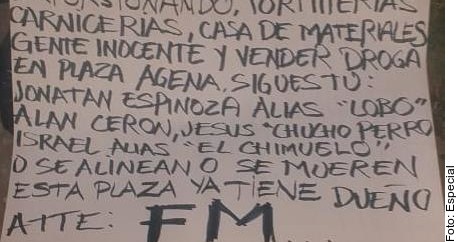 TORTILLERIAS
CARNICERIAS, CASA DE MATERIALES
GENTE INOCENTE Y VENDER DROGA
EN PLAZA AGENA. SIGUES TU:
JONATAN ESPINOZA ALIAS "LOBO"
ALAN CERON, JESUS "CHUCHO PERRO
ISRAEL ALIAS "EL CHIMUELO",
O SE ALINEAN O SE MUEREN
ESTA PLAZA YA TIENE DUEÑO
ATTE: FM...
Foto: Especial